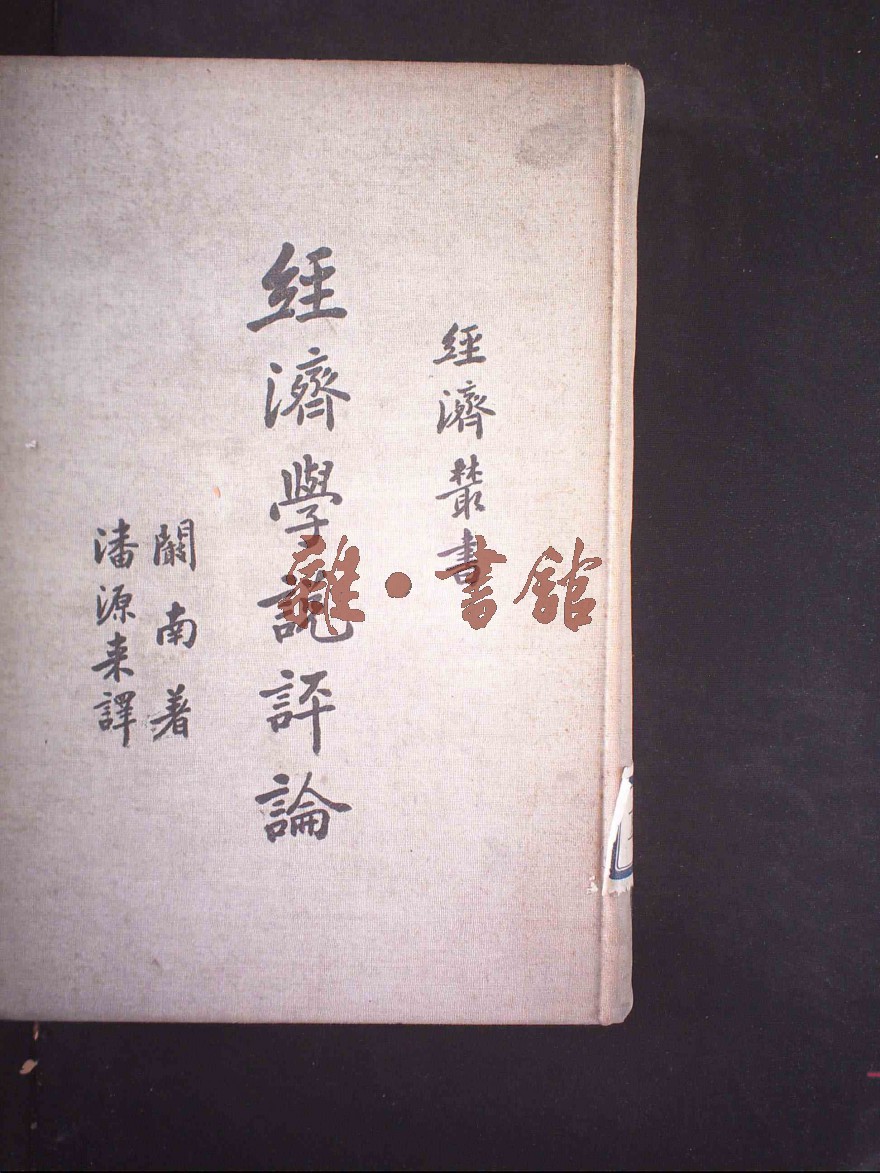 經濟叢書
經濟學說評論
闞南著
潘源来譯
雜·書館